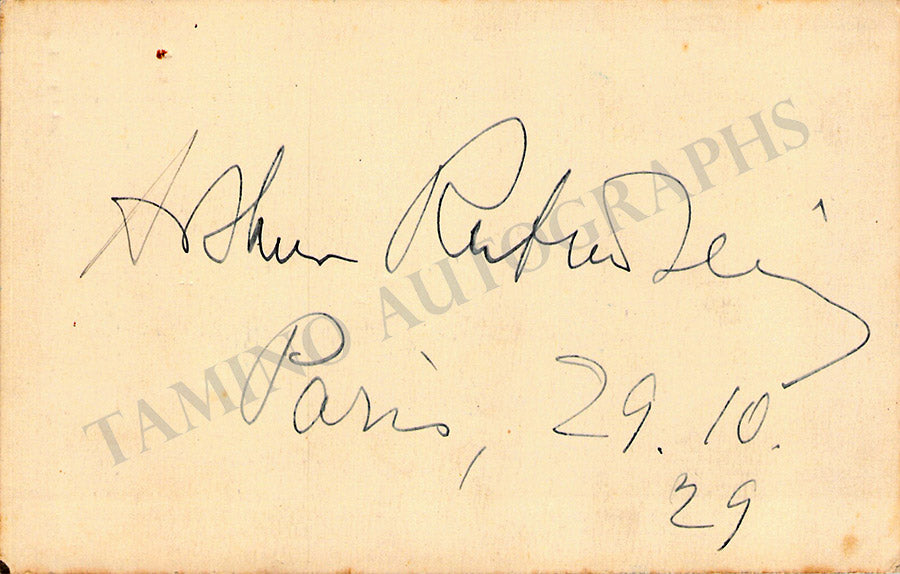 Arthur Rubinstein
Paris, 29. 10.
29
TAMINO AUTOGRAPHS